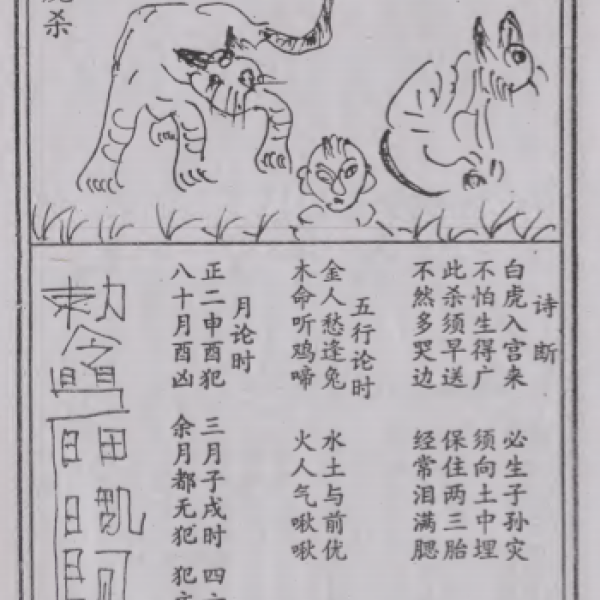 杀
诗断
白虎入宫来 必生子孙灾
不怕生得广 须向土中埋
此杀须早送 保住两三胎
不然多哭边 经常泪满腮
五行论时
金人愁逢兔 水土与前优
木命听鸡啼 火人气啾啾
月论时
正二申酉犯 三月子戌时 四
八十月酉凶 余月都无犯 犯